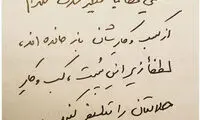 از کسب و کارشان باز مانده اند،
لطفاً زیر این پست، کسب و کار
حلالتان را تبلیغ کنید